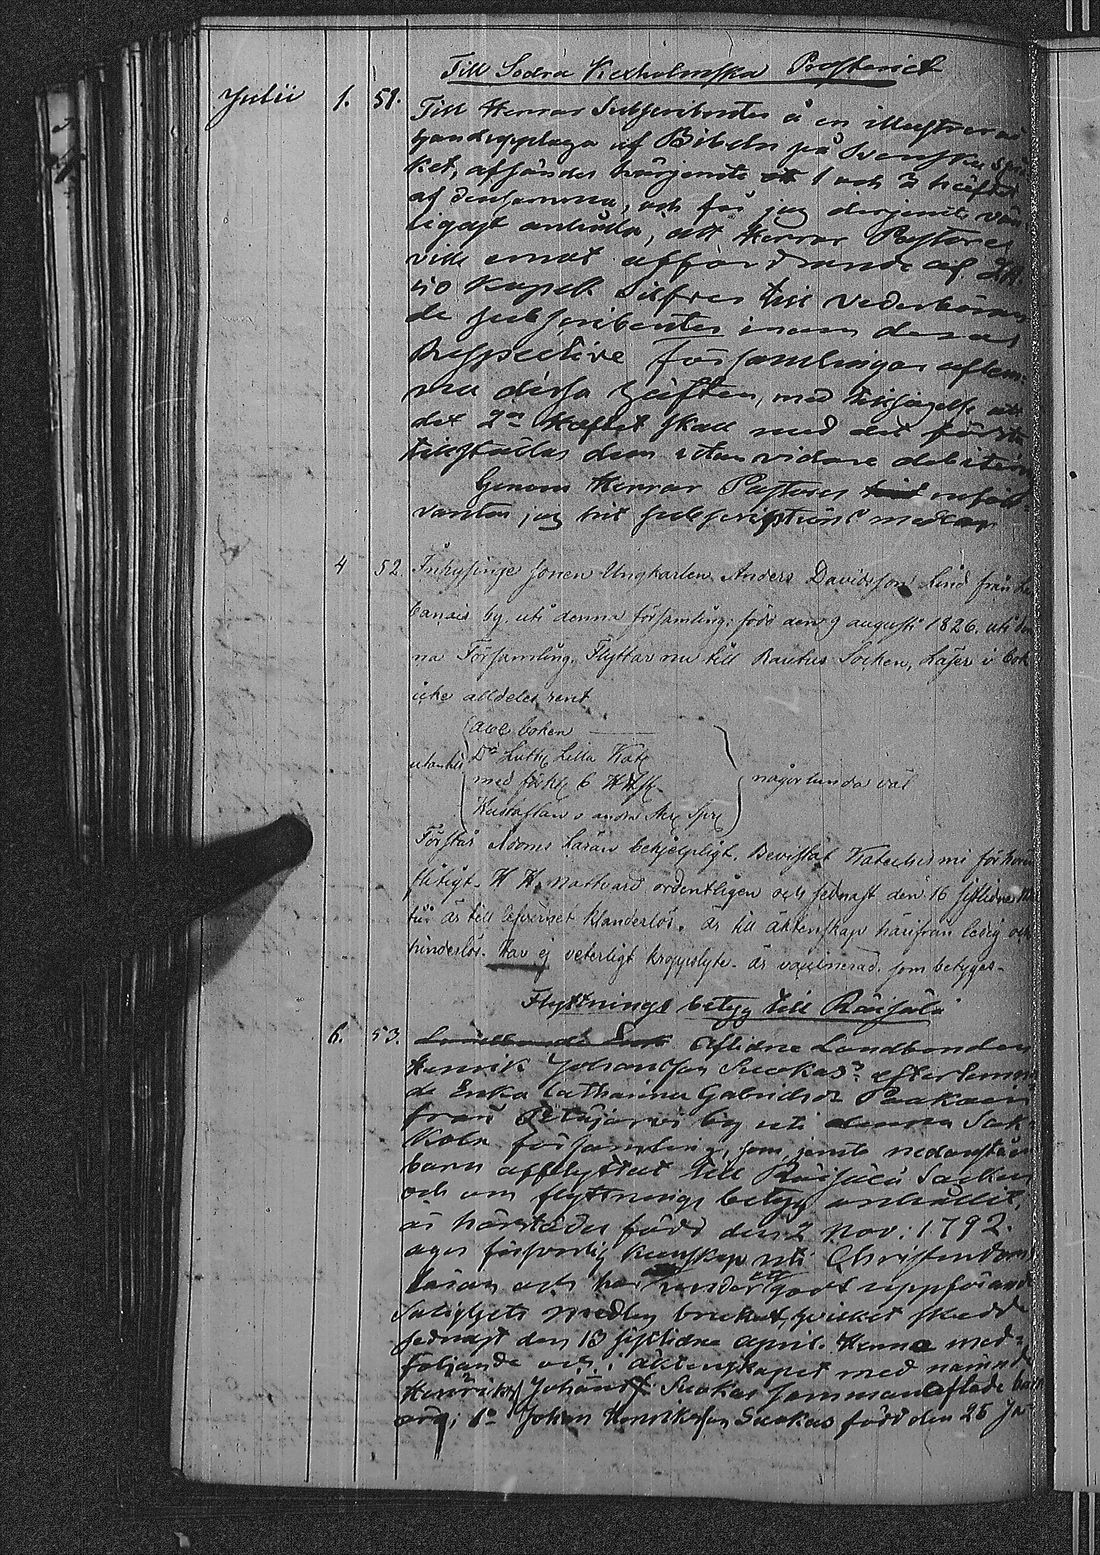 Till Södra Kexholmska Prosteriet
Julii 1. 51. Till Herrar Subscribenter å en illustrerad
handupplaga af Bibeln på Svenska språ
ket, afsändes härjemte 1 och 2 häftet
af densamma, och får jag derjemte vän
ligast anhålla, att Herrar Pastorer
ville emot affordrande af
50 Kopek Silfver till vederböran
de subscribenter inom deras
Respective församlingar aflem
na dessa häften, med tillsägelse att
det 2a Häftet skall med det första
tillställas dem utan vidare debitering
Genom Herrar Pastorer
väntar jag hit subscriptions medlen
4 52. Inhysinge sonen Ungkarlen Anders Davidsson Lind från
by, uti denna församling, född den 9 augusti 1826, uti den
na Församling, Flyttar nu till Rautus Socken, Läser i bok
icke alldeles rent
abc boken
utantill Do Luth Lilla Kate
med förkl. 6 HHst.
Hustaflan o andra Spr
någorlunda väl
Förstår Läran behjelpligt. Bevistat Katechismi förhören
flitigt. H H. Nattvard ordentligen och sednast den 16 sistlidne
är till lefvernet klanderlös. är till äktenskap härifrån ledig och
hinderlös. Har ej veterligt kroppslyte. är vaxinerad, som betygas.
Flyttnings betyg till Räisälä
6. 53. Aflidne Landbonden
Henrik Johansson Suokas efterlemna
de Enka Catharina Gabrielsdr Paakain
från Petäjärvi by uti denna Sak
kola församling, som jemte nedanstående
barn afflyttat till Räisälä Socken
och om flyttnings betyg anhållit,
är härstädes född den 2 Nov. 1792.
äger försvarlig kunskap uti Christendoms
läran och har under ett godt uppförande
Salighets medlen brukat, hvilket skedde
sednast den 13 sistlidne april. Henne med=
följande och i äktenskapet med nämnde
Henrik Johanss Suokas sammanaflade barn
äro; 1o Johan Henriksson Suokas född den 25 Ja